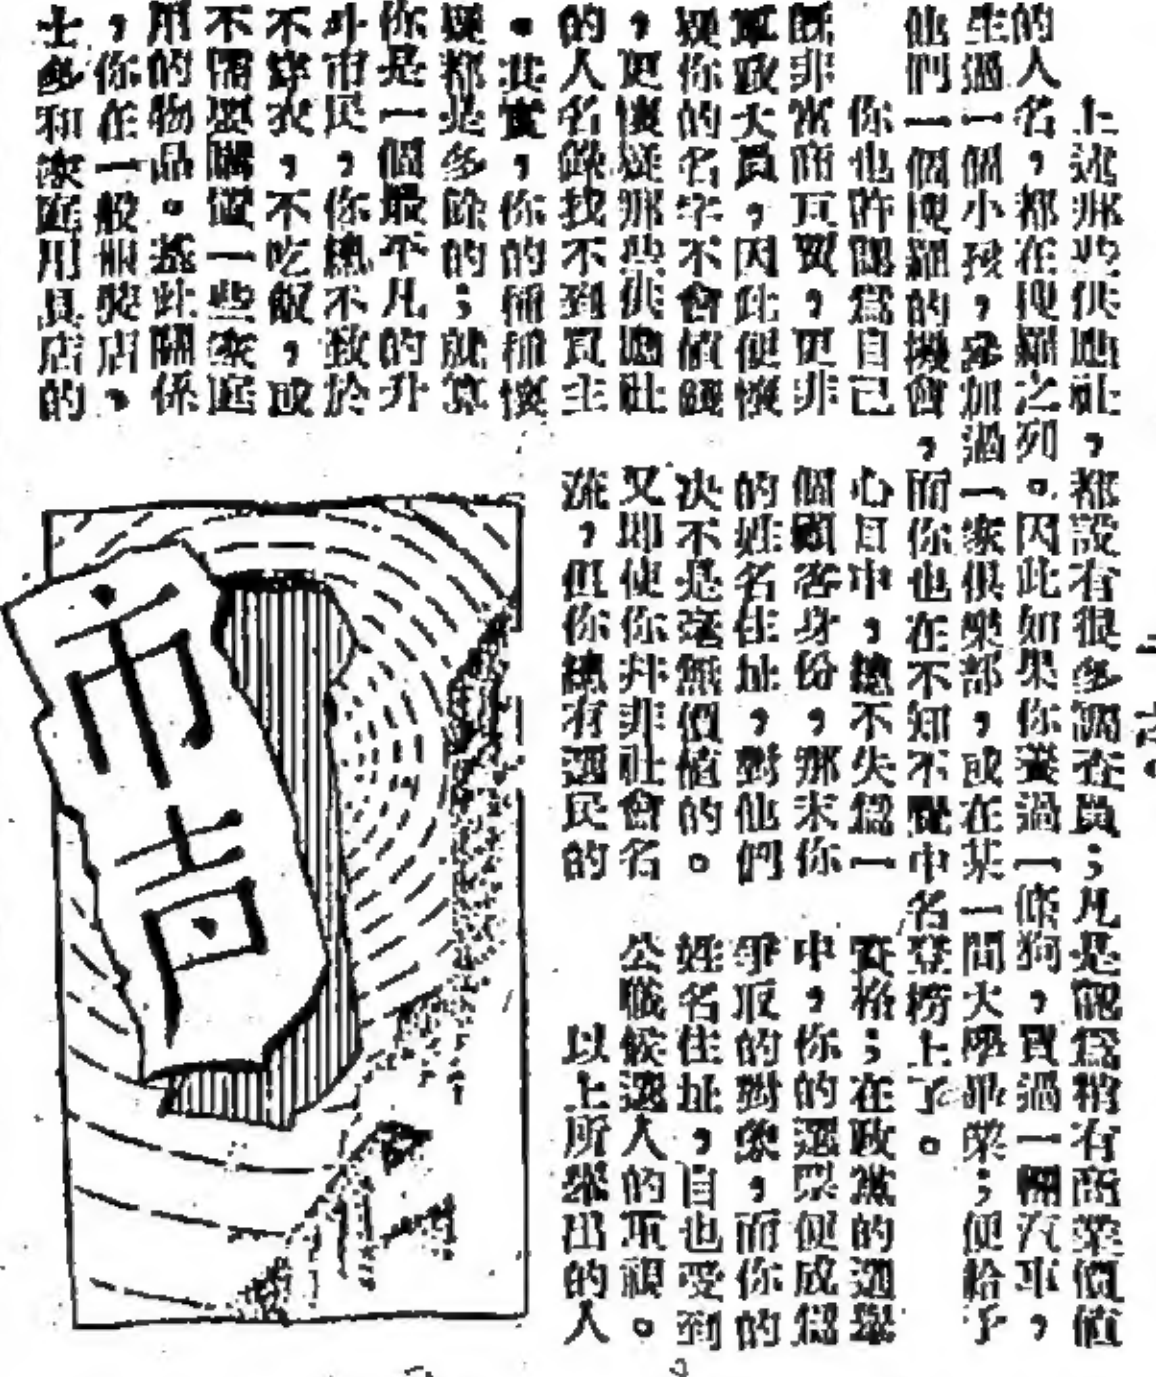 上述那些供應社,都設有很多調查員;凡是認爲稍有商業價值
的人名,都在搜羅之列。因此如果你養過一條狗,買過一輛汽車,
生過一個小孩,參加過一家俱樂部,或在某一間大學畢業;便給予
他們一個搜羅的機會,而你也在不知不覺中名登榜上了。
你也許認爲自己
既非富商互賈,更非
軍政大員,因此便懷
疑你的名字不會值錢
,更懷疑那些供應社
的人名錄找不到買主
。其實,你的種種懷
疑都是多餘的;就算
你是一個最平凡的升
斗市民,你總不致於
不穿衣,不吃飯,或
不需要購置一些家庭
用的物品。基此關係
,你在一般服裝店,
士多和家庭用具店的
心目中,總不失爲一
個顧客身份,那末你
的姓名住址,對他們
决不是毫無價值的。
又即使你并非社會名
流,但你總有選民的
資格;在政黨的選舉
中,你的選票便成爲
爭取的對象,而你的
姓名住址,自也受到
公職候選人的重視。
以上所舉出的人
市声